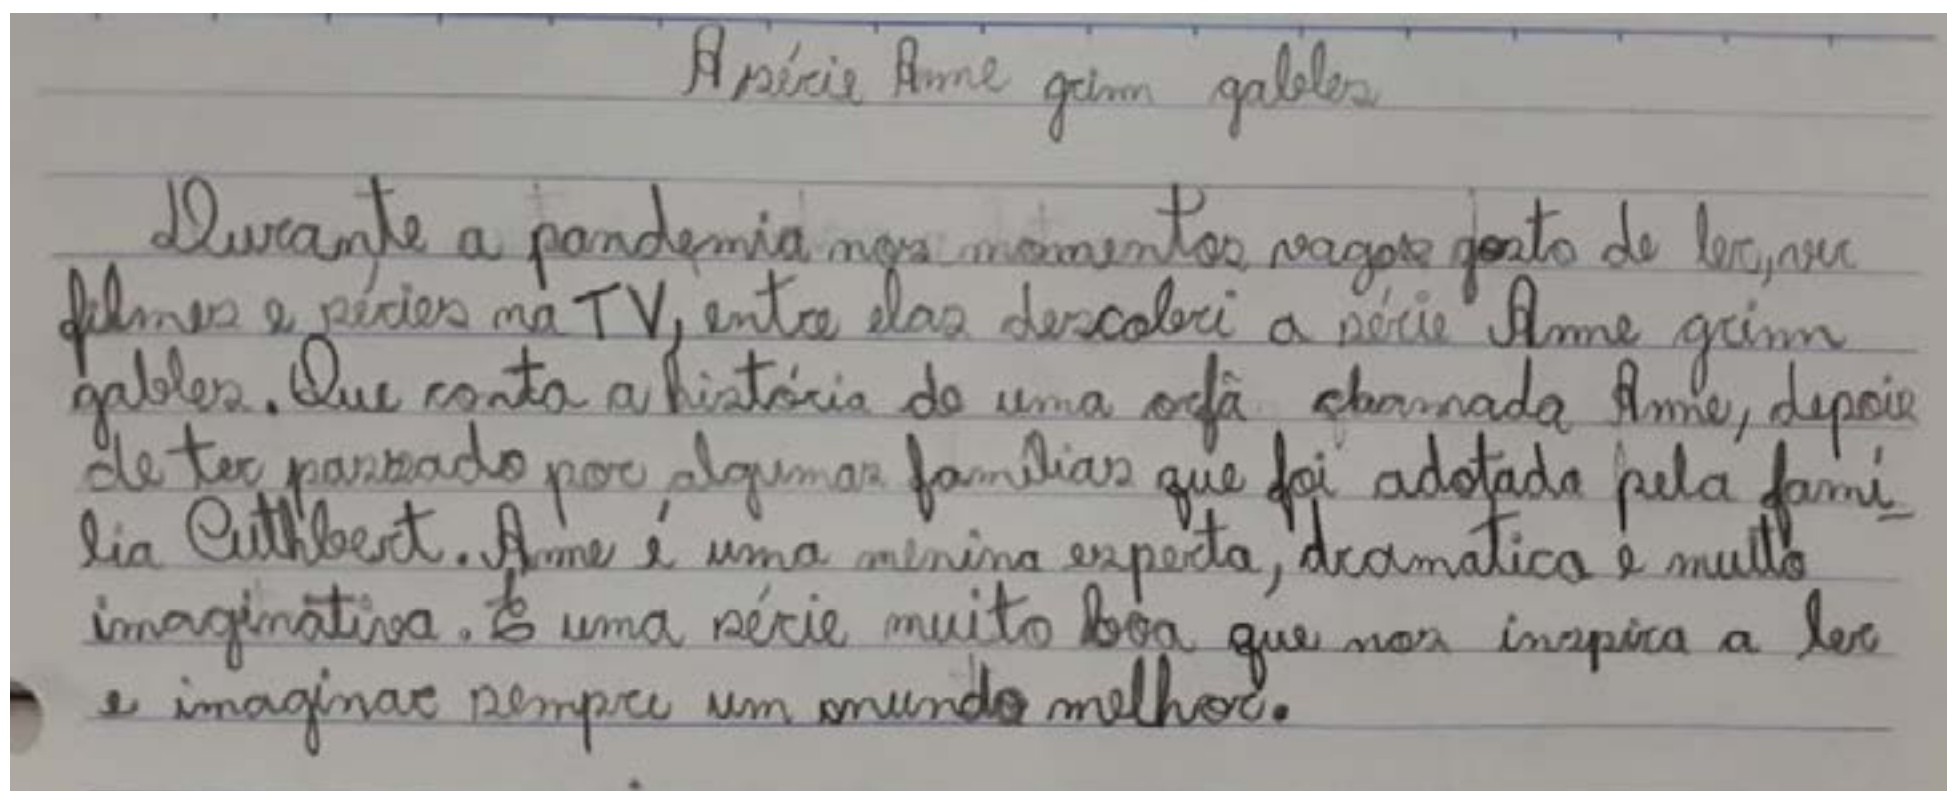 A série Anne grinn gables
Durante a pandemia nos momentos vagos gosto de ler, ver
filmes e séries na TV, entre elas descobri a série Anne grinn
gables. Que conta a história de uma orfã chamada Anne, depois
de ter passado por algumas famílias que foi adotada pela famí_
lia Cuthbert. Anne é uma menina esperta, dramatica e muito
imaginativa. É uma série muito boa que nos inspira a ler
e imaginar sempre um mundo melhor.